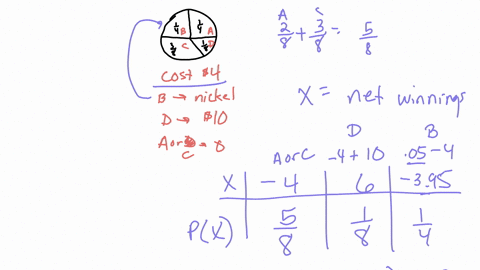 1/4 B 1/4 A
3/8 C 1/8 D
cost $4
B → nickel
D → $10
A or C = 0
A C
2/8 + 3/8 = 5/8
X = net winnings
D B
A or C -4+10 .05-4
X -4 6 -3.95
P(X) 5/8 1/8 1/4